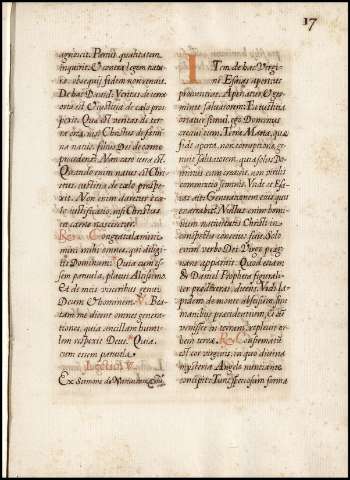 17
agnoscit. Persit qualitatem
inquirit. Et contra legem natu
ra obsequij fidem non vendit.
De hac David: Veritas de terra
orta est: et iustitia de caelo pros
pexit. Quae est veritas de ter
ra orta, nisi Christus de faemi
na natus, filius Dei de carne
procedens? Nam caro terra est.
Quando enim natus est Chris
tus, iustitia de caelo prospe
xit. Non enim daretur è cae
lo iustificatio, nisi Christus in
carne nasceretur.
Congratulamini
mihi omnes, qui diligi
tis Dominum: Quia cum es
sem parvula, placui Altissimo
Et de meis visceribus genui
Deum et hominem. V. Bea
tam me dicent omnes genera
tiones, quia ancillam humi
lem respexit Deus. Quia.
cum essem parvula.
Ex Sermone de Nativitate
ITem. de hac Virgi
ni Esaias apertius
pronunciat. Aperiatur, et ger
minet salvatorem: Et iustitia
oriatur simul, ego Dominus
creavi eum. Terra Maria, quae
fide aperta, non corruptione, ge
nuit salvatorem, quia solus Do
minus creavit eum, non virilis
commixtio seminis. Unde et Esa
ias ait: Generationem eius quis
enarrabit? Nullus enim homi
num nativitatis Christi in
conspectu conscius fuit. Solo
enim verbo Dei Virgo praeg
nans apparuit. Quod etiam
et Daniel Propheta figurali
ter praefiterat, dicens. Vidi la
pidem de monte abscissum, sine
manibus praecidentium, et cum
venisset in terram, replevit or
bem terrae. Consummati
est cor virginis, in quo divina
mysteria Angelo nuntiante
concepit: Tunc speciosum forma